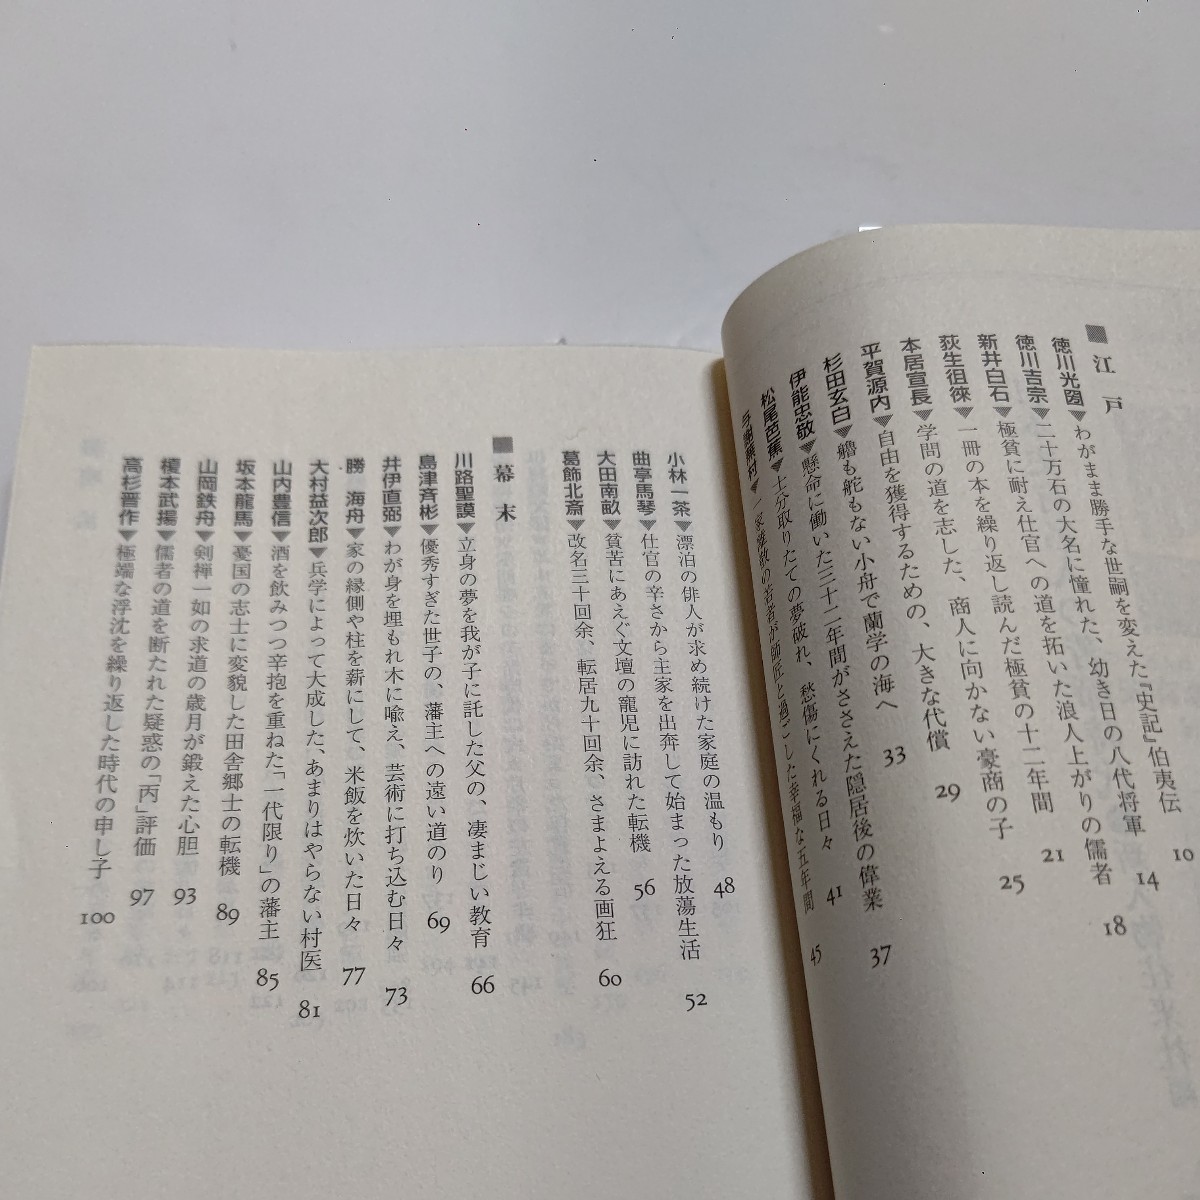 ■江戸
徳川光圀▼わがまま勝手な世嗣を変えた『史記』伯夷伝 10
徳川吉宗▼二十万石の大名に憧れた、幼き日の八代将軍 14
新井白石▼極貧に耐え仕官への道を拓いた浪人上がりの儒者 18
荻生徂徠▼一冊の本を繰り返し読んだ極貧の十二年間 21
本居宣長▼学問の道を志した、商人に向かない豪商の子 25
平賀源内▼自由を獲得するための、大きな代償 29
杉田玄白▼艪も舵もない小舟で蘭学の海へ 33
伊能忠敬▼懸命に働いた三十二年間がささえた隠居後の偉業 37
松尾芭蕉▼士分取りたての夢破れ、愁傷にくれる日々 41
与謝蕪村▼一家離散の若者が師匠と過ごした幸福な五年間 45
小林一茶▼漂泊の俳人が求め続けた家庭の温もり 48
曲亭馬琴▼仕官の辛さから主家を出奔して始まった放蕩生活 52
大田南畝▼貧苦にあえぐ文壇の寵児に訪れた転機 56
葛飾北斎▼改名三十回余、転居九十回余、さまよえる画狂 60
■幕末
川路聖謨▼立身の夢を我が子に託した父の、凄まじい教育 66
島津斉彬▼優秀すぎた世子の、藩主への遠い道のり 69
井伊直弼▼わが身を埋もれ木に喩え、芸術に打ち込む日々 73
勝　海舟▼家の縁側や柱を薪にして、米飯を炊いた日々 77
大村益次郎▼兵学によって大成した、あまりはやらない村医 81
山内豊信▼酒を飲みつつ辛抱を重ねた「一代限り」の藩主 85
坂本龍馬▼憂国の志士に変貌した田舎郷士の転機 89
山岡鉄舟▼剣禅一如の求道の歳月が鍛えた心胆 93
榎本武揚▼儒者の道を断たれた疑惑の「丙」評価 97
高杉晋作▼極端な浮沈を繰り返した時代の申し子 100